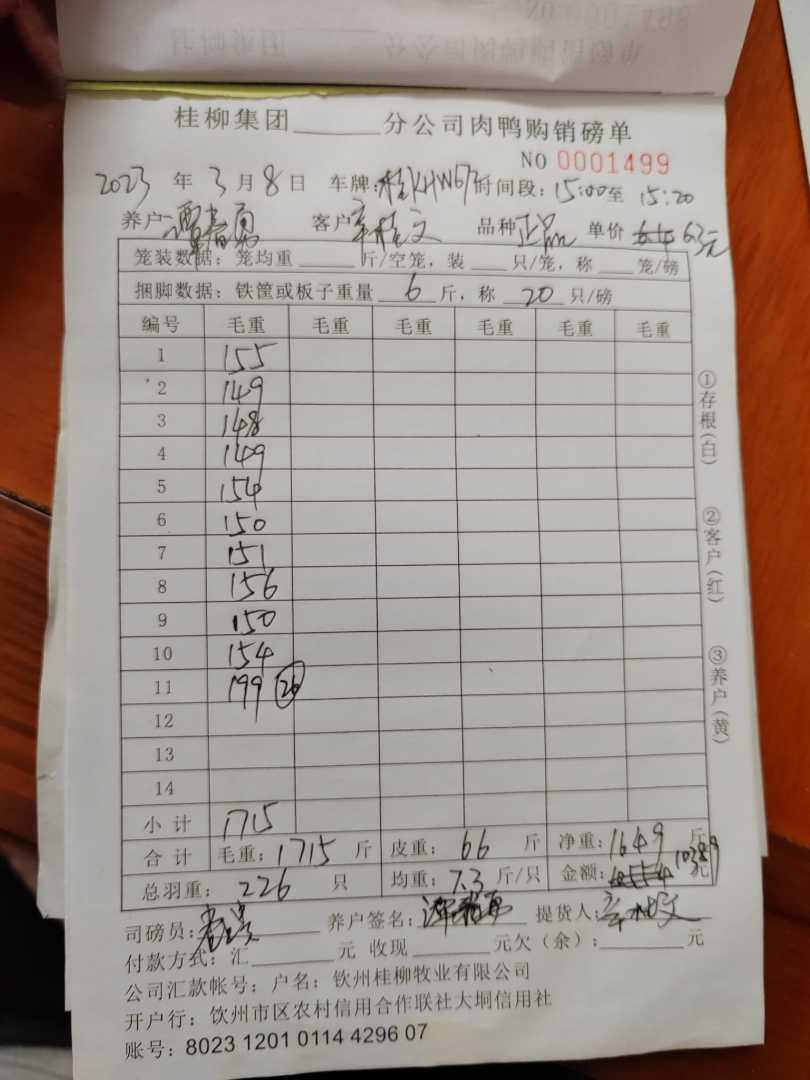 桂柳集团______分公司肉鸭购销磅单
NO 0001499
2023 年 3 月 8 日 车牌:桂KHW673 时间段:15:00至 15:20
养户:覃春勇 客户 辛桂文 品种 正品 单价 6.3元
笼装数据:笼均重______斤/空笼,装____只/笼,称____笼/磅
捆脚数据:铁筐或板子重量 6 斤,称 20 只/磅
编号 毛重 毛重 毛重 毛重 毛重 毛重
1 155
2 149
3 148
4 149
5 154
6 150
7 151
8 156
9 150
10 154
11 199 26
12
13
14
小计 1715
合计 毛重:1715 斤 皮重:66 斤 净重:1649 斤
总羽重:226 只 均重:7.3 斤/只 金额:10389元
司磅员: 养户签名: 提货人:辛桂文
付款方式:汇______元 收现______元欠(余):______元
公司汇款帐号:户名:钦州桂柳牧业有限公司
开户行:钦州市区农村信用合作联社大垌信用社
账号:8023 1201 0114 4296 07
①存根(白)
②客户(红)
③养户(黄)